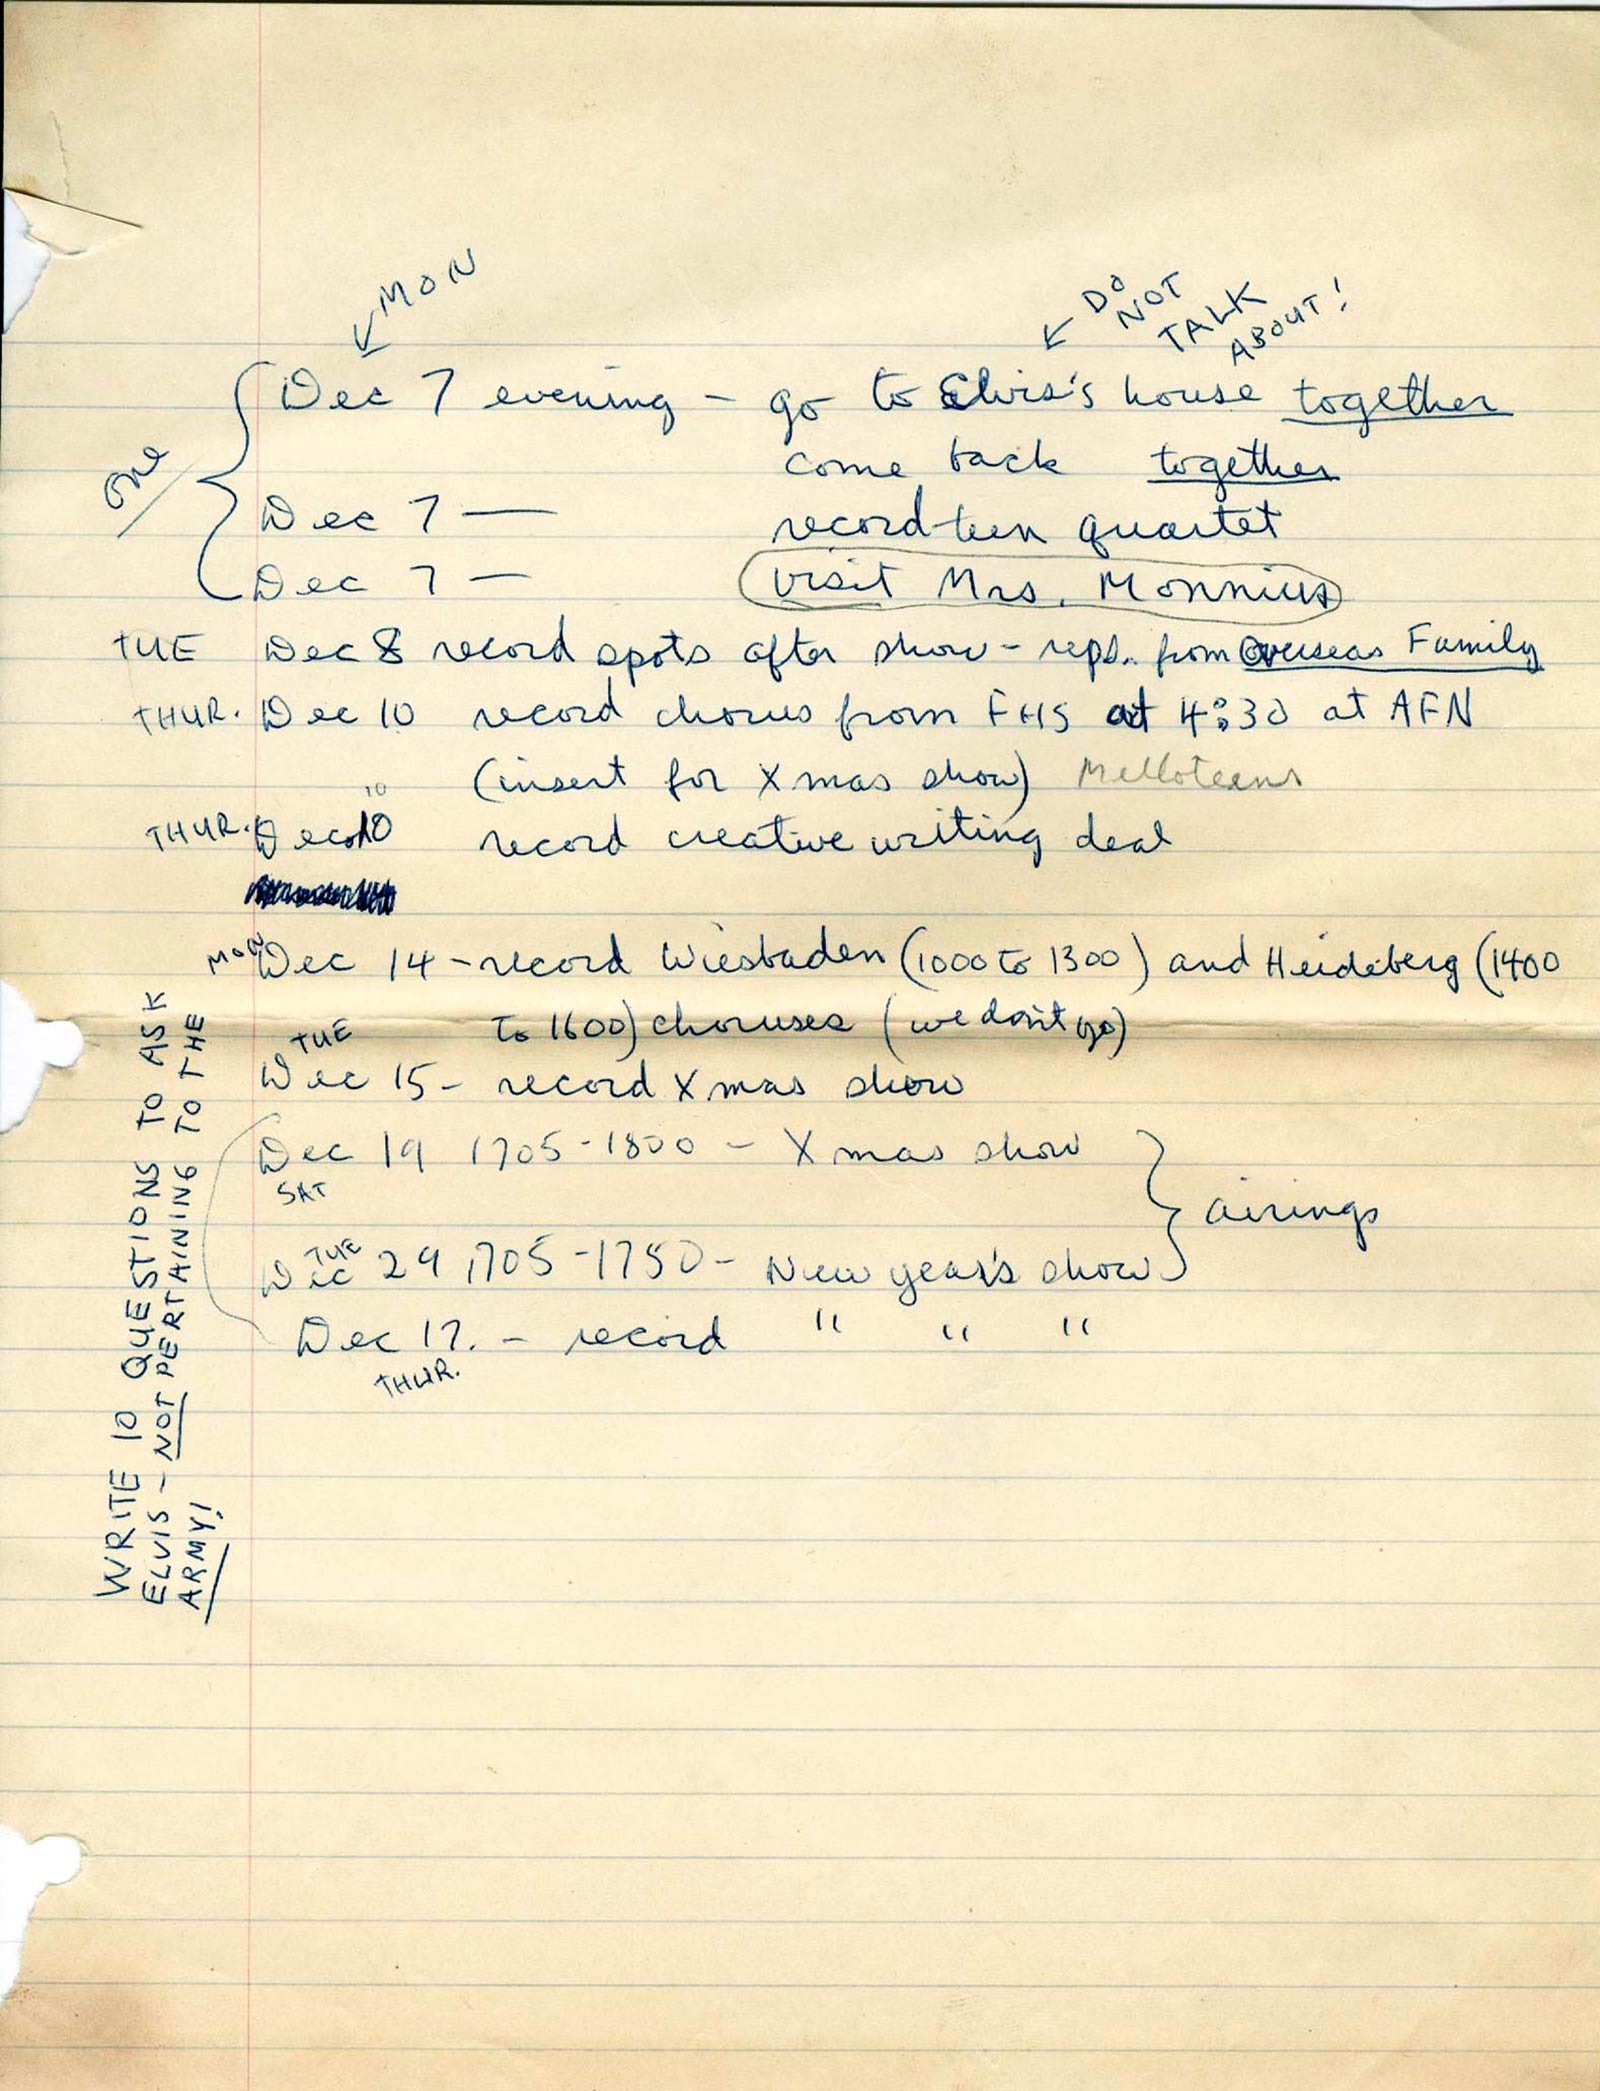 MON
DO NOT TALK ABOUT!
Dec 7 evening - go to Elvis's house together
come back together
one
Dec 7 — record teen quartet
Dec 7 — visit Mrs. Monnius
TUE Dec 8 record spots after show - reps. from Overseas Family
THUR. Dec 10 record chorus from FHS at 4:30 at AFN
(insert for Xmas show) Melloteens
10
THUR. Dec 10 record creative writing deal
MON Dec 14 - record Wiesbaden (1000 to 1300) and Heideberg (1400
to 1600) choruses (we don't go)
TUE
Dec 15 - record Xmas show
Dec 19 1705-1800 - Xmas show
SAT
airings
TUE
Dec 29 1705-1750 - New year's show
Dec 17. - record " " "
THUR.
WRITE 10 QUESTIONS TO ASK
ELVIS - NOT PERTAINING TO THE
ARMY!